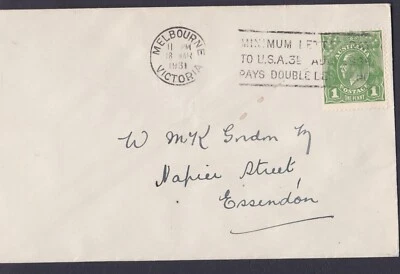 MELBOURNE
11 PM
18 MAR
1931
VICTORIA
MINIMUM LETTER
TO U.S.A. 3D
PAYS DOUBLE
AUSTRALIA
1 POSTAGE 1
ONE PENNY
W McK Gordon
Napier Street
Essendon